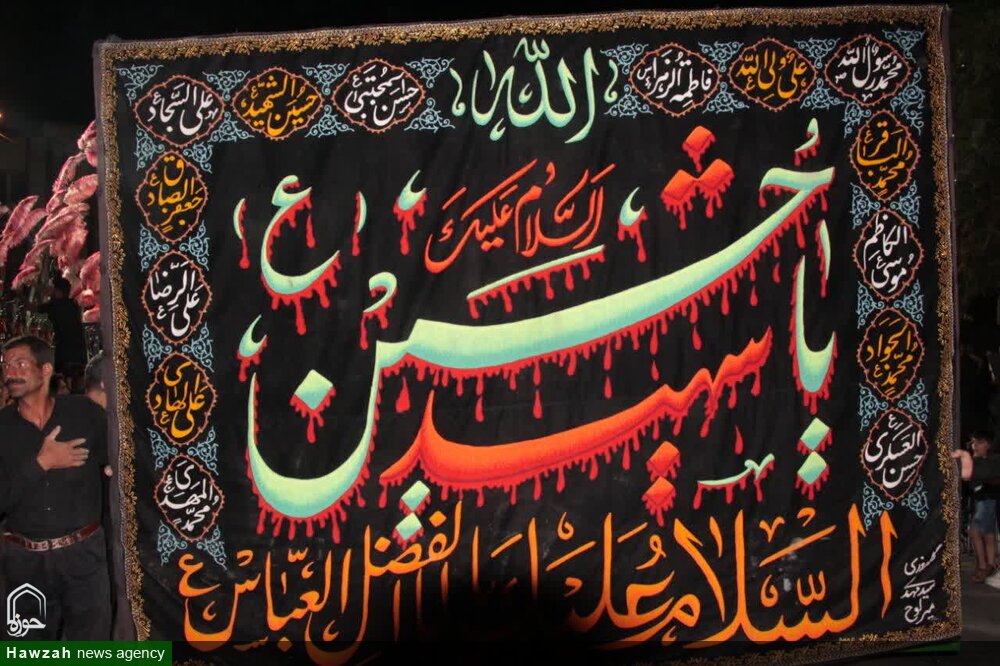 محمد رسول الله
علی ولی الله
فاطمة الزهراء
الله
حسن المجتبی
حسین الشهید
علی السجاد
محمد الباقر
جعفر الصادق
موسی الکاظم
علی الرضا
محمد الجواد
علی الهادی
حسن العسکری
محمد المهدی
السلام علیک
یا حسین ع
شهید
السلام علیک یا ابا الفضل العباس ع
حوزه
Hawzah news agency